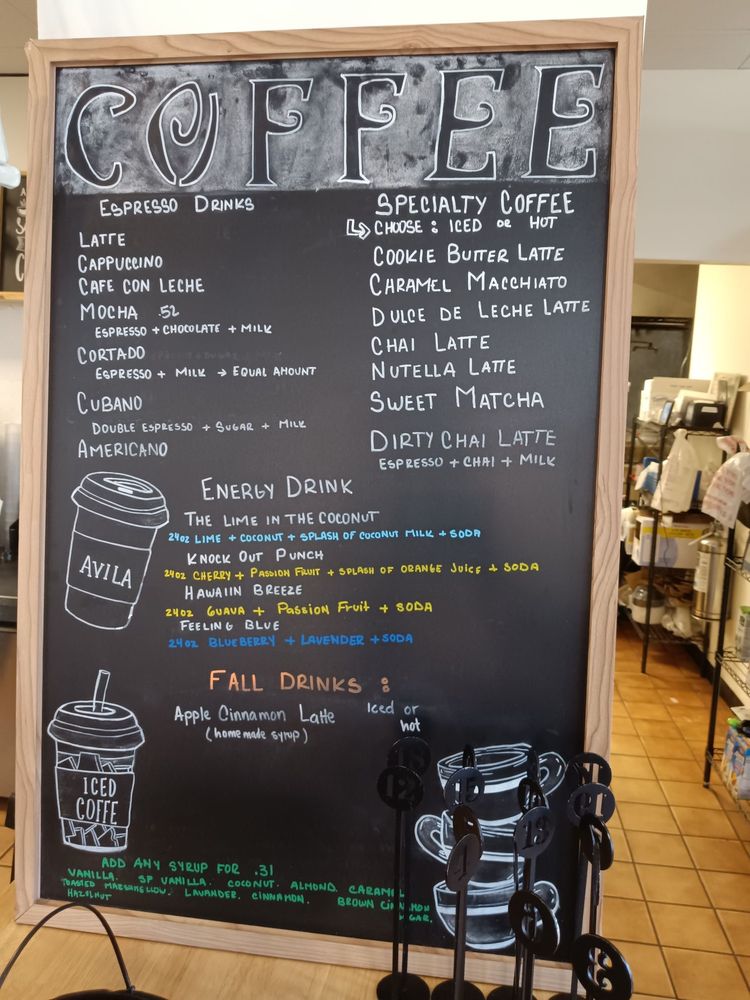 COFFEE
ESPRESSO DRINKS
LATTE
CAPPUCCINO
CAFE CON LECHE
MOCHA .52
ESPRESSO + CHOCOLATE + MILK
CORTADO
ESPRESSO + MILK → EQUAL AMOUNT
CUBANO
DOUBLE ESPRESSO + SUGAR + MILK
AMERICANO
SPECIALTY COFFEE
↳ CHOOSE : ICED OR HOT
COOKIE BUTTER LATTE
CARAMEL MACCHIATO
DULCE DE LECHE LATTE
CHAI LATTE
NUTELLA LATTE
SWEET MATCHA
DIRTY CHAI LATTE
ESPRESSO + CHAI + MILK
ENERGY DRINK
THE LIME IN THE COCONUT
24OZ LIME + COCONUT + SPLASH OF COCONUT MILK + SODA
KNOCK OUT PUNCH
24OZ CHERRY + PASSION FRUIT + SPLASH OF ORANGE JUICE + SODA
HAWAIIN BREEZE
24OZ GUAVA + PASSION FRUIT + SODA
FEELING BLUE
24OZ BLUEBERRY + LAVENDER + SODA
AVILA
FALL DRINKS :
Apple Cinnamon Latte Iced or hot
(home made syrup)
ICED
COFFE
ADD ANY SYRUP FOR .31
VANILLA. SP VANILLA. COCONUT. ALMOND. CARAMEL
TOASTED MARSHMELLOW. LAVANDER. CINNAMON. BROWN CINNAMON
HAZELNUT SUGAR.
12
15
18
1